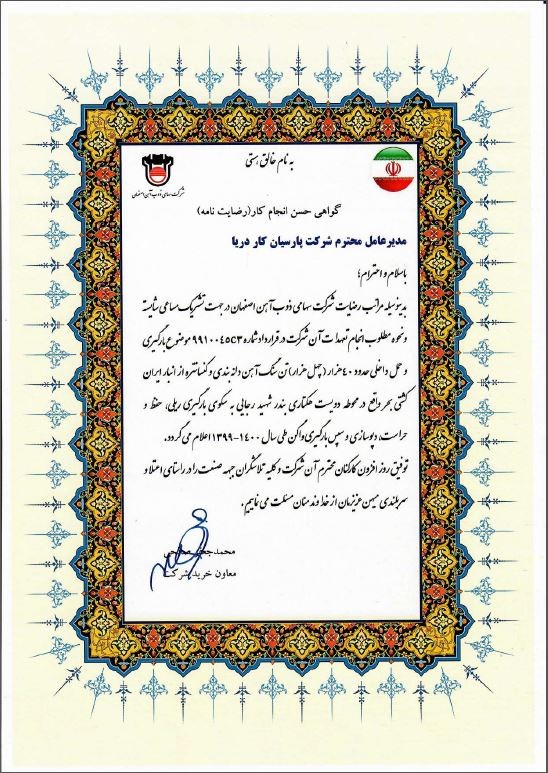 به نام خالق هستی
شرکت سهامی ذوب آهن اصفهان
گواهی حسن انجام کار(رضایت نامه)
مدیرعامل محترم شرکت پارسیان کار دریا
باسلام و احترام؛
بدینوسیله مراتب رضایت شرکت سهامی ذوب آهن اصفهان در جهت تشریک مساعی شایسته
و نحوه مطلوب انجام تعهدات آن شرکت در قرارداد شماره ۹۹۱۰۰۴۵C۳ موضوع بارگیری
و حمل داخلی حدود ۴۰ هزار (چهل هزار) تن سنگ آهن دانه بندی و کنسانتره از انبار ایران
کشتی بحر واقع در محوطه دویست هکتاری بندر شهید رجایی به سکوی بارگیری ریلی، حفظ و
حراست، دپوسازی و سپس بارگیری واگن طی سال ۱۴۰۰-۱۳۹۹ اعلام می گردد.
توفیق روز افزون کارکنان محترم آن شرکت و کلیه تلاشگران جبهه صنعت را در راستای اعتلا و
سربلندی میهن عزیزمان از خداوند منان مسئلت می نماییم.
محمدجعفر صالحی
معاون خرید شرکت